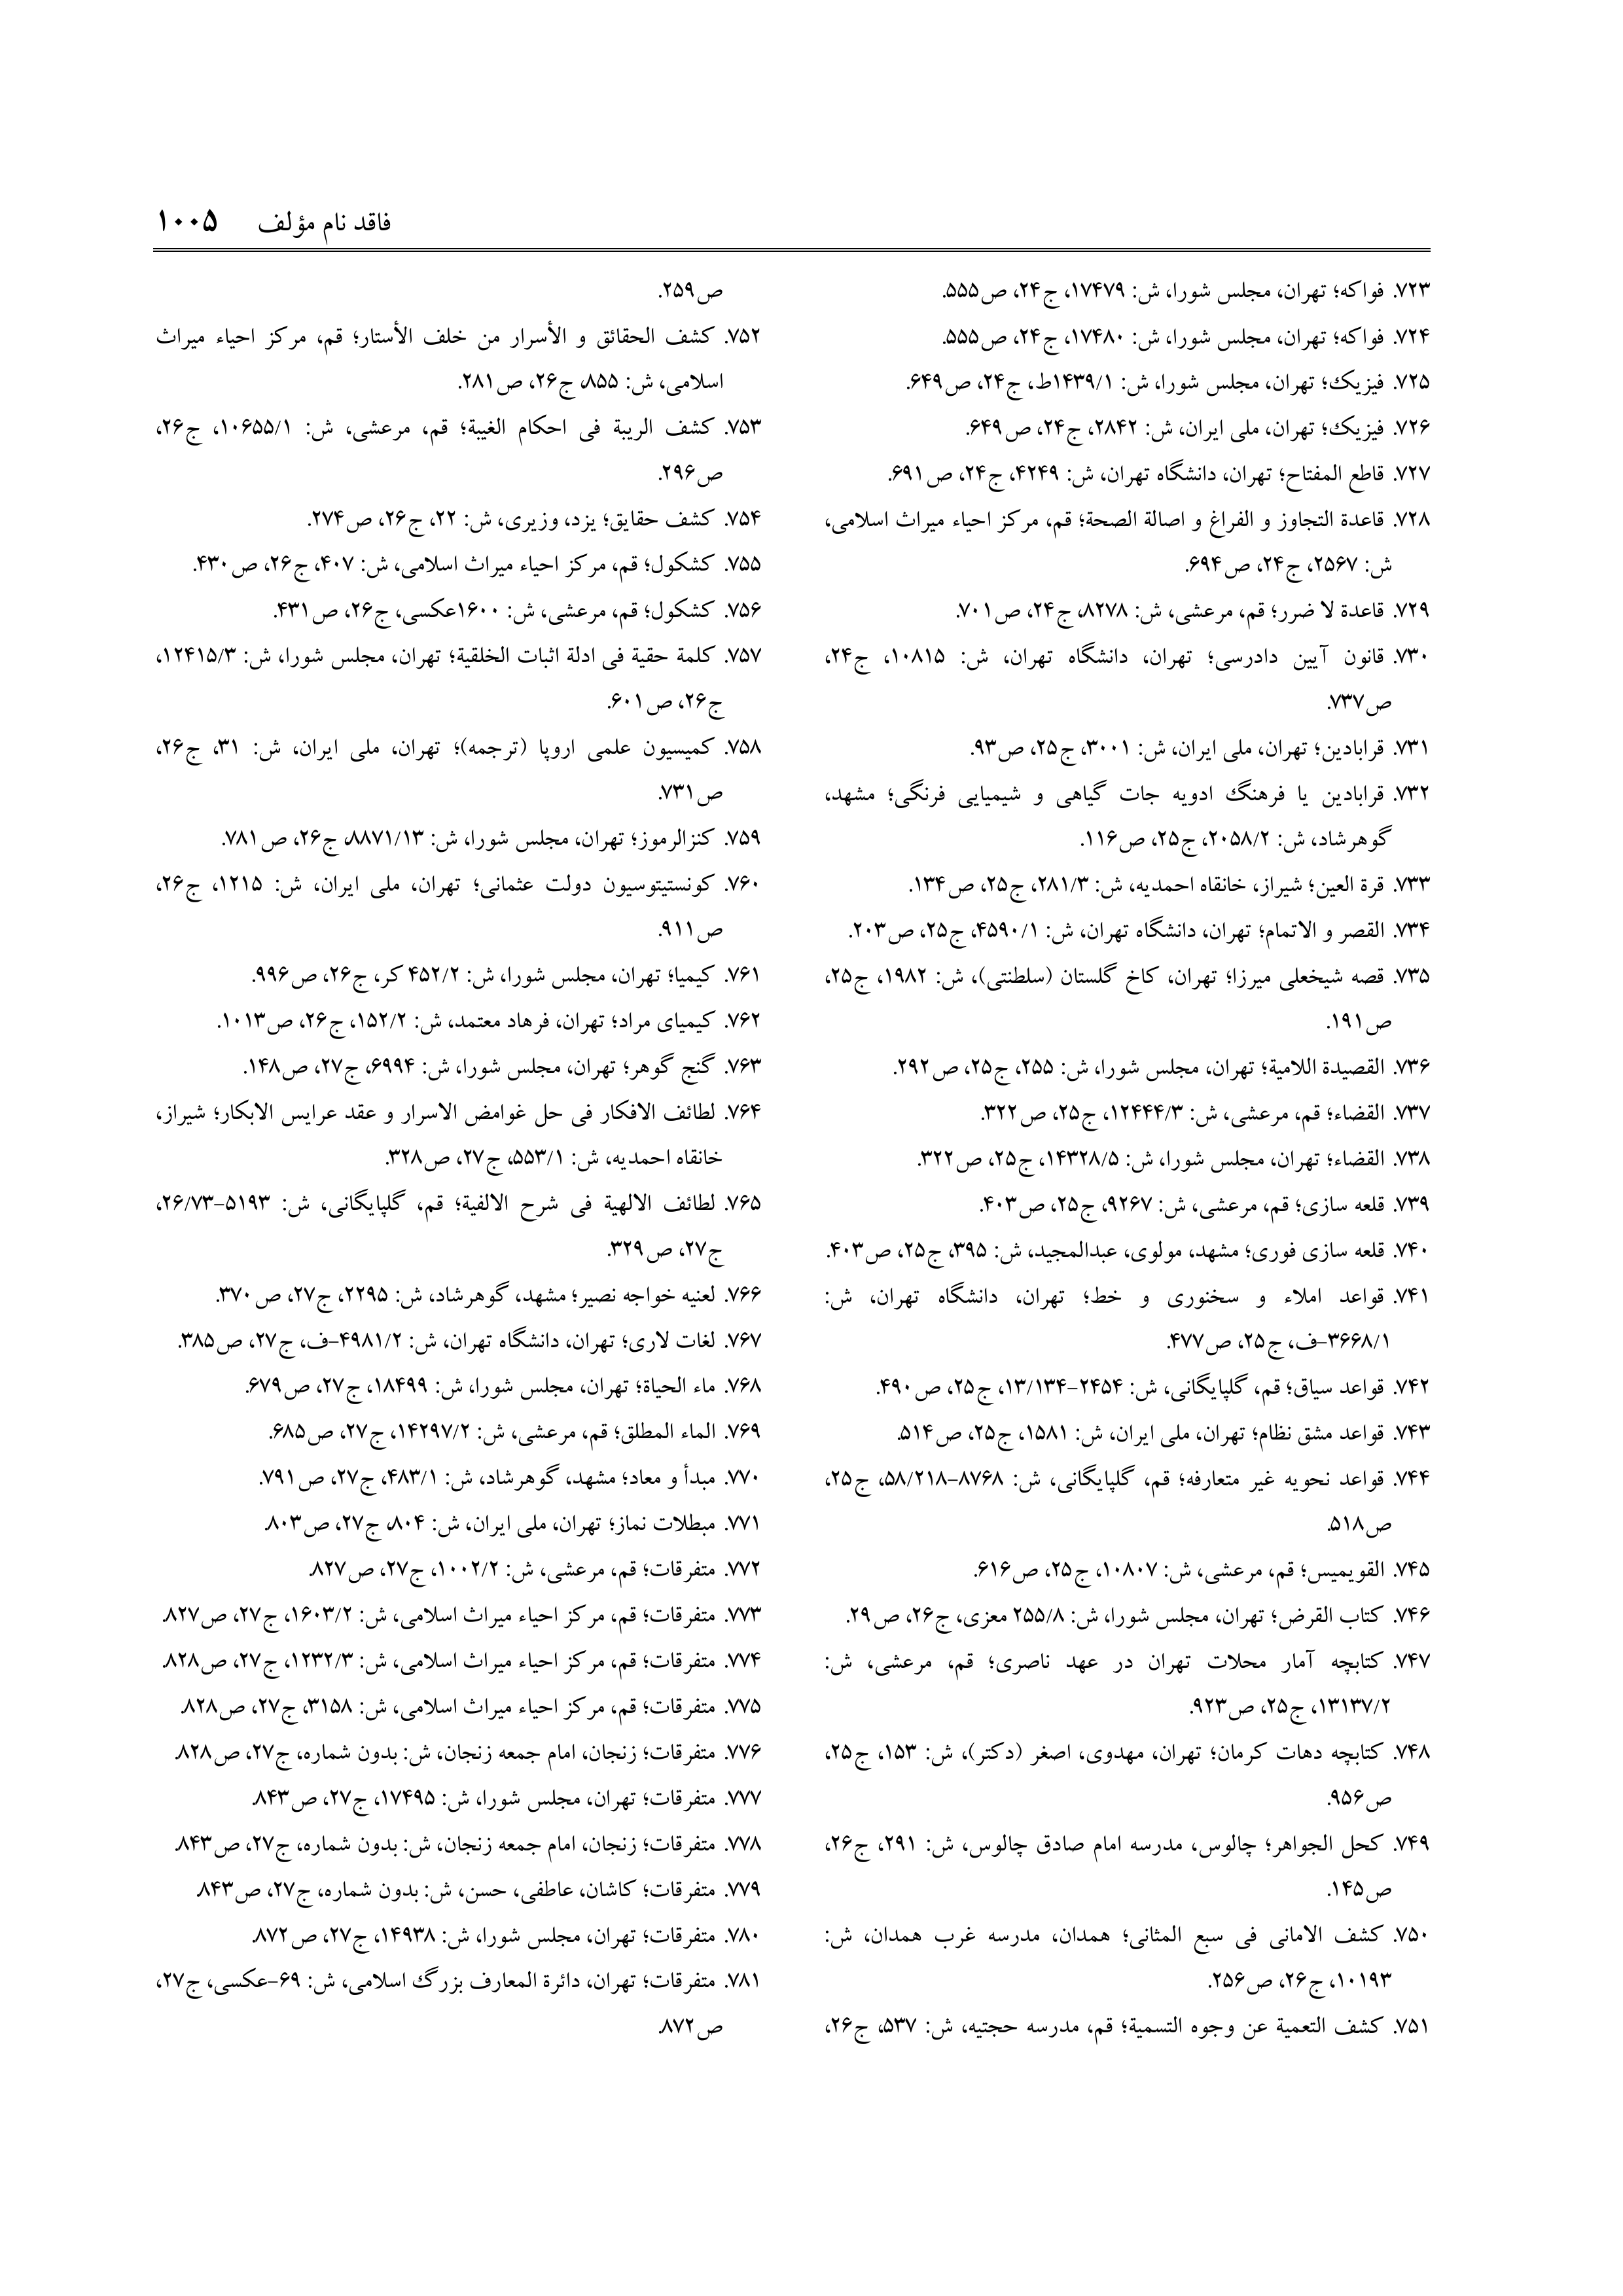 فاقد نام مؤلف ۱۰۰۵
۷۲۳. فواکه؛ تهران، مجلس شورا، ش: ۱۷۴۷۹، ج۲۴، ص۵۵۵.
۷۲۴. فواکه؛ تهران، مجلس شورا، ش: ۱۷۴۸۰، ج۲۴، ص۵۵۵.
۷۲۵. فیزیک؛ تهران، مجلس شورا، ش: ۱۴۳۹/۱ط، ج۲۴، ص۶۴۹.
۷۲۶. فیزیک؛ تهران، ملی ایران، ش: ۲۸۴۲، ج۲۴، ص۶۴۹.
۷۲۷. قاطع المفتاح؛ تهران، دانشگاه تهران، ش: ۴۲۴۹، ج۲۴، ص۶۹۱.
۷۲۸. قاعدة التجاوز و الفراغ و اصالة الصحة؛ قم، مرکز احیاء میراث اسلامی،
ش: ۲۵۶۷، ج۲۴، ص۶۹۴.
۷۲۹. قاعدة لا ضرر؛ قم، مرعشی، ش: ۸۲۷۸، ج۲۴، ص۷۰۱.
۷۳۰. قانون آیین دادرسی؛ تهران، دانشگاه تهران، ش: ۱۰۸۱۵، ج۲۴،
ص۷۳۷.
۷۳۱. قرابادین؛ تهران، ملی ایران، ش: ۳۰۰۱، ج۲۵، ص۹۳.
۷۳۲. قرابادین یا فرهنگ ادویه جات گیاهی و شیمیایی فرنگی؛ مشهد،
گوهرشاد، ش: ۲۰۵۸/۲، ج۲۵، ص۱۱۶.
۷۳۳. قرة العین؛ شیراز، خانقاه احمدیه، ش: ۲۸۱/۳، ج۲۵، ص۱۳۴.
۷۳۴. القصر و الاتمام؛ تهران، دانشگاه تهران، ش: ۴۵۹۰/۱، ج۲۵، ص۲۰۳.
۷۳۵. قصه شیخعلی میرزا؛ تهران، کاخ گلستان (سلطنتی)، ش: ۱۹۸۲، ج۲۵،
ص۱۹۱.
۷۳۶. القصیدة اللامیة؛ تهران، مجلس شورا، ش: ۲۵۵، ج۲۵، ص۲۹۲.
۷۳۷. القضاء؛ قم، مرعشی، ش: ۱۲۴۴۴/۳، ج۲۵، ص۳۲۲.
۷۳۸. القضاء؛ تهران، مجلس شورا، ش: ۱۴۳۲۸/۵، ج۲۵، ص۳۲۲.
۷۳۹. قلعه سازی؛ قم، مرعشی، ش: ۹۲۶۷، ج۲۵، ص۴۰۳.
۷۴۰. قلعه سازی فوری؛ مشهد، مولوی، عبدالمجید، ش: ۳۹۵، ج۲۵، ص۴۰۳.
۷۴۱. قواعد املاء و سخنوری و خط؛ تهران، دانشگاه تهران، ش:
۳۶۶۸/۱-ف، ج۲۵، ص۴۷۷.
۷۴۲. قواعد سیاق؛ قم، گلپایگانی، ش: ۲۴۵۴-۱۳/۱۳۴، ج۲۵، ص۴۹۰.
۷۴۳. قواعد مشق نظام؛ تهران، ملی ایران، ش: ۱۵۸۱، ج۲۵، ص۵۱۴.
۷۴۴. قواعد نحویه غیر متعارفه؛ قم، گلپایگانی، ش: ۸۷۶۸-۵۸/۲۱۸، ج۲۵،
ص۵۱۸.
۷۴۵. القویمیس؛ قم، مرعشی، ش: ۱۰۸۰۷، ج۲۵، ص۶۱۶.
۷۴۶. کتاب القرض؛ تهران، مجلس شورا، ش: ۲۵۵/۸ معزی، ج۲۶، ص۲۹.
۷۴۷. کتابچه آمار محلات تهران در عهد ناصری؛ قم، مرعشی، ش:
۱۳۱۳۷/۲، ج۲۵، ص۹۲۳.
۷۴۸. کتابچه دهات کرمان؛ تهران، مهدوی، اصغر (دکتر)، ش: ۱۵۳، ج۲۵،
ص۹۵۶.
۷۴۹. کحل الجواهر؛ چالوس، مدرسه امام صادق چالوس، ش: ۲۹۱، ج۲۶،
ص۱۴۵.
۷۵۰. کشف الامانی فی سبع المثانی؛ همدان، مدرسه غرب همدان، ش:
۱۰۱۹۳، ج۲۶، ص۲۵۶.
۷۵۱. کشف التعمیة عن وجوه التسمیة؛ قم، مدرسه حجتیه، ش: ۵۳۷، ج۲۶،
ص۲۵۹.
۷۵۲. کشف الحقائق و الأسرار من خلف الأستار؛ قم، مرکز احیاء میراث
اسلامی، ش: ۸۵۵، ج۲۶، ص۲۸۱.
۷۵۳. کشف الریبة فی احکام الغیبة؛ قم، مرعشی، ش: ۱۰۶۵۵/۱، ج۲۶،
ص۲۹۶.
۷۵۴. کشف حقایق؛ یزد، وزیری، ش: ۲۲، ج۲۶، ص۲۷۴.
۷۵۵. کشکول؛ قم، مرکز احیاء میراث اسلامی، ش: ۴۰۷، ج۲۶، ص۴۳۰.
۷۵۶. کشکول؛ قم، مرعشی، ش: ۱۶۰۰عکسی، ج۲۶، ص۴۳۱.
۷۵۷. کلمة حقیة فی ادلة اثبات الخلقیة؛ تهران، مجلس شورا، ش: ۱۲۴۱۵/۳،
ج۲۶، ص۶۰۱.
۷۵۸. کمیسیون علمی اروپا (ترجمه)؛ تهران، ملی ایران، ش: ۳۱، ج۲۶،
ص۷۳۱.
۷۵۹. کنزالرموز؛ تهران، مجلس شورا، ش: ۸۸۷۱/۱۳، ج۲۶، ص۷۸۱.
۷۶۰. کونستیتوسیون دولت عثمانی؛ تهران، ملی ایران، ش: ۱۲۱۵، ج۲۶،
ص۹۱۱.
۷۶۱. کیمیا؛ تهران، مجلس شورا، ش: ۴۵۲/۲ کر، ج۲۶، ص۹۹۶.
۷۶۲. کیمیای مراد؛ تهران، فرهاد معتمد، ش: ۱۵۲/۲، ج۲۶، ص۱۰۱۳.
۷۶۳. گنج گوهر؛ تهران، مجلس شورا، ش: ۶۹۹۴، ج۲۷، ص۱۴۸.
۷۶۴. لطائف الافکار فی حل غوامض الاسرار و عقد عرایس الابکار؛ شیراز،
خانقاه احمدیه، ش: ۵۵۳/۱، ج۲۷، ص۳۲۸.
۷۶۵. لطائف الالهیة فی شرح الالفیة؛ قم، گلپایگانی، ش: ۵۱۹۳-۲۶/۷۳،
ج۲۷، ص۳۲۹.
۷۶۶. لعنیه خواجه نصیر؛ مشهد، گوهرشاد، ش: ۲۲۹۵، ج۲۷، ص۳۷۰.
۷۶۷. لغات لاری؛ تهران، دانشگاه تهران، ش: ۴۹۸۱/۲-ف، ج۲۷، ص۳۸۵.
۷۶۸. ماء الحیاة؛ تهران، مجلس شورا، ش: ۱۸۴۹۹، ج۲۷، ص۶۷۹.
۷۶۹. الماء المطلق؛ قم، مرعشی، ش: ۱۴۲۹۷/۲، ج۲۷، ص۶۸۵.
۷۷۰. مبدأ و معاد؛ مشهد، گوهرشاد، ش: ۴۸۳/۱، ج۲۷، ص۷۹۱.
۷۷۱. مبطلات نماز؛ تهران، ملی ایران، ش: ۸۰۴، ج۲۷، ص۸۰۳.
۷۷۲. متفرقات؛ قم، مرعشی، ش: ۱۰۰۲/۲، ج۲۷، ص۸۲۷.
۷۷۳. متفرقات؛ قم، مرکز احیاء میراث اسلامی، ش: ۱۶۰۳/۲، ج۲۷، ص۸۲۷.
۷۷۴. متفرقات؛ قم، مرکز احیاء میراث اسلامی، ش: ۱۲۳۲/۳، ج۲۷، ص۸۲۸.
۷۷۵. متفرقات؛ قم، مرکز احیاء میراث اسلامی، ش: ۳۱۵۸، ج۲۷، ص۸۲۸.
۷۷۶. متفرقات؛ زنجان، امام جمعه زنجان، ش: بدون شماره، ج۲۷، ص۸۲۸.
۷۷۷. متفرقات؛ تهران، مجلس شورا، ش: ۱۷۴۹۵، ج۲۷، ص۸۴۳.
۷۷۸. متفرقات؛ زنجان، امام جمعه زنجان، ش: بدون شماره، ج۲۷، ص۸۴۳.
۷۷۹. متفرقات؛ کاشان، عاطفی، حسن، ش: بدون شماره، ج۲۷، ص۸۴۳.
۷۸۰. متفرقات؛ تهران، مجلس شورا، ش: ۱۴۹۳۸، ج۲۷، ص۸۷۲.
۷۸۱. متفرقات؛ تهران، دائرة المعارف بزرگ اسلامی، ش: ۶۹-عکسی، ج۲۷،
ص۸۷۲.